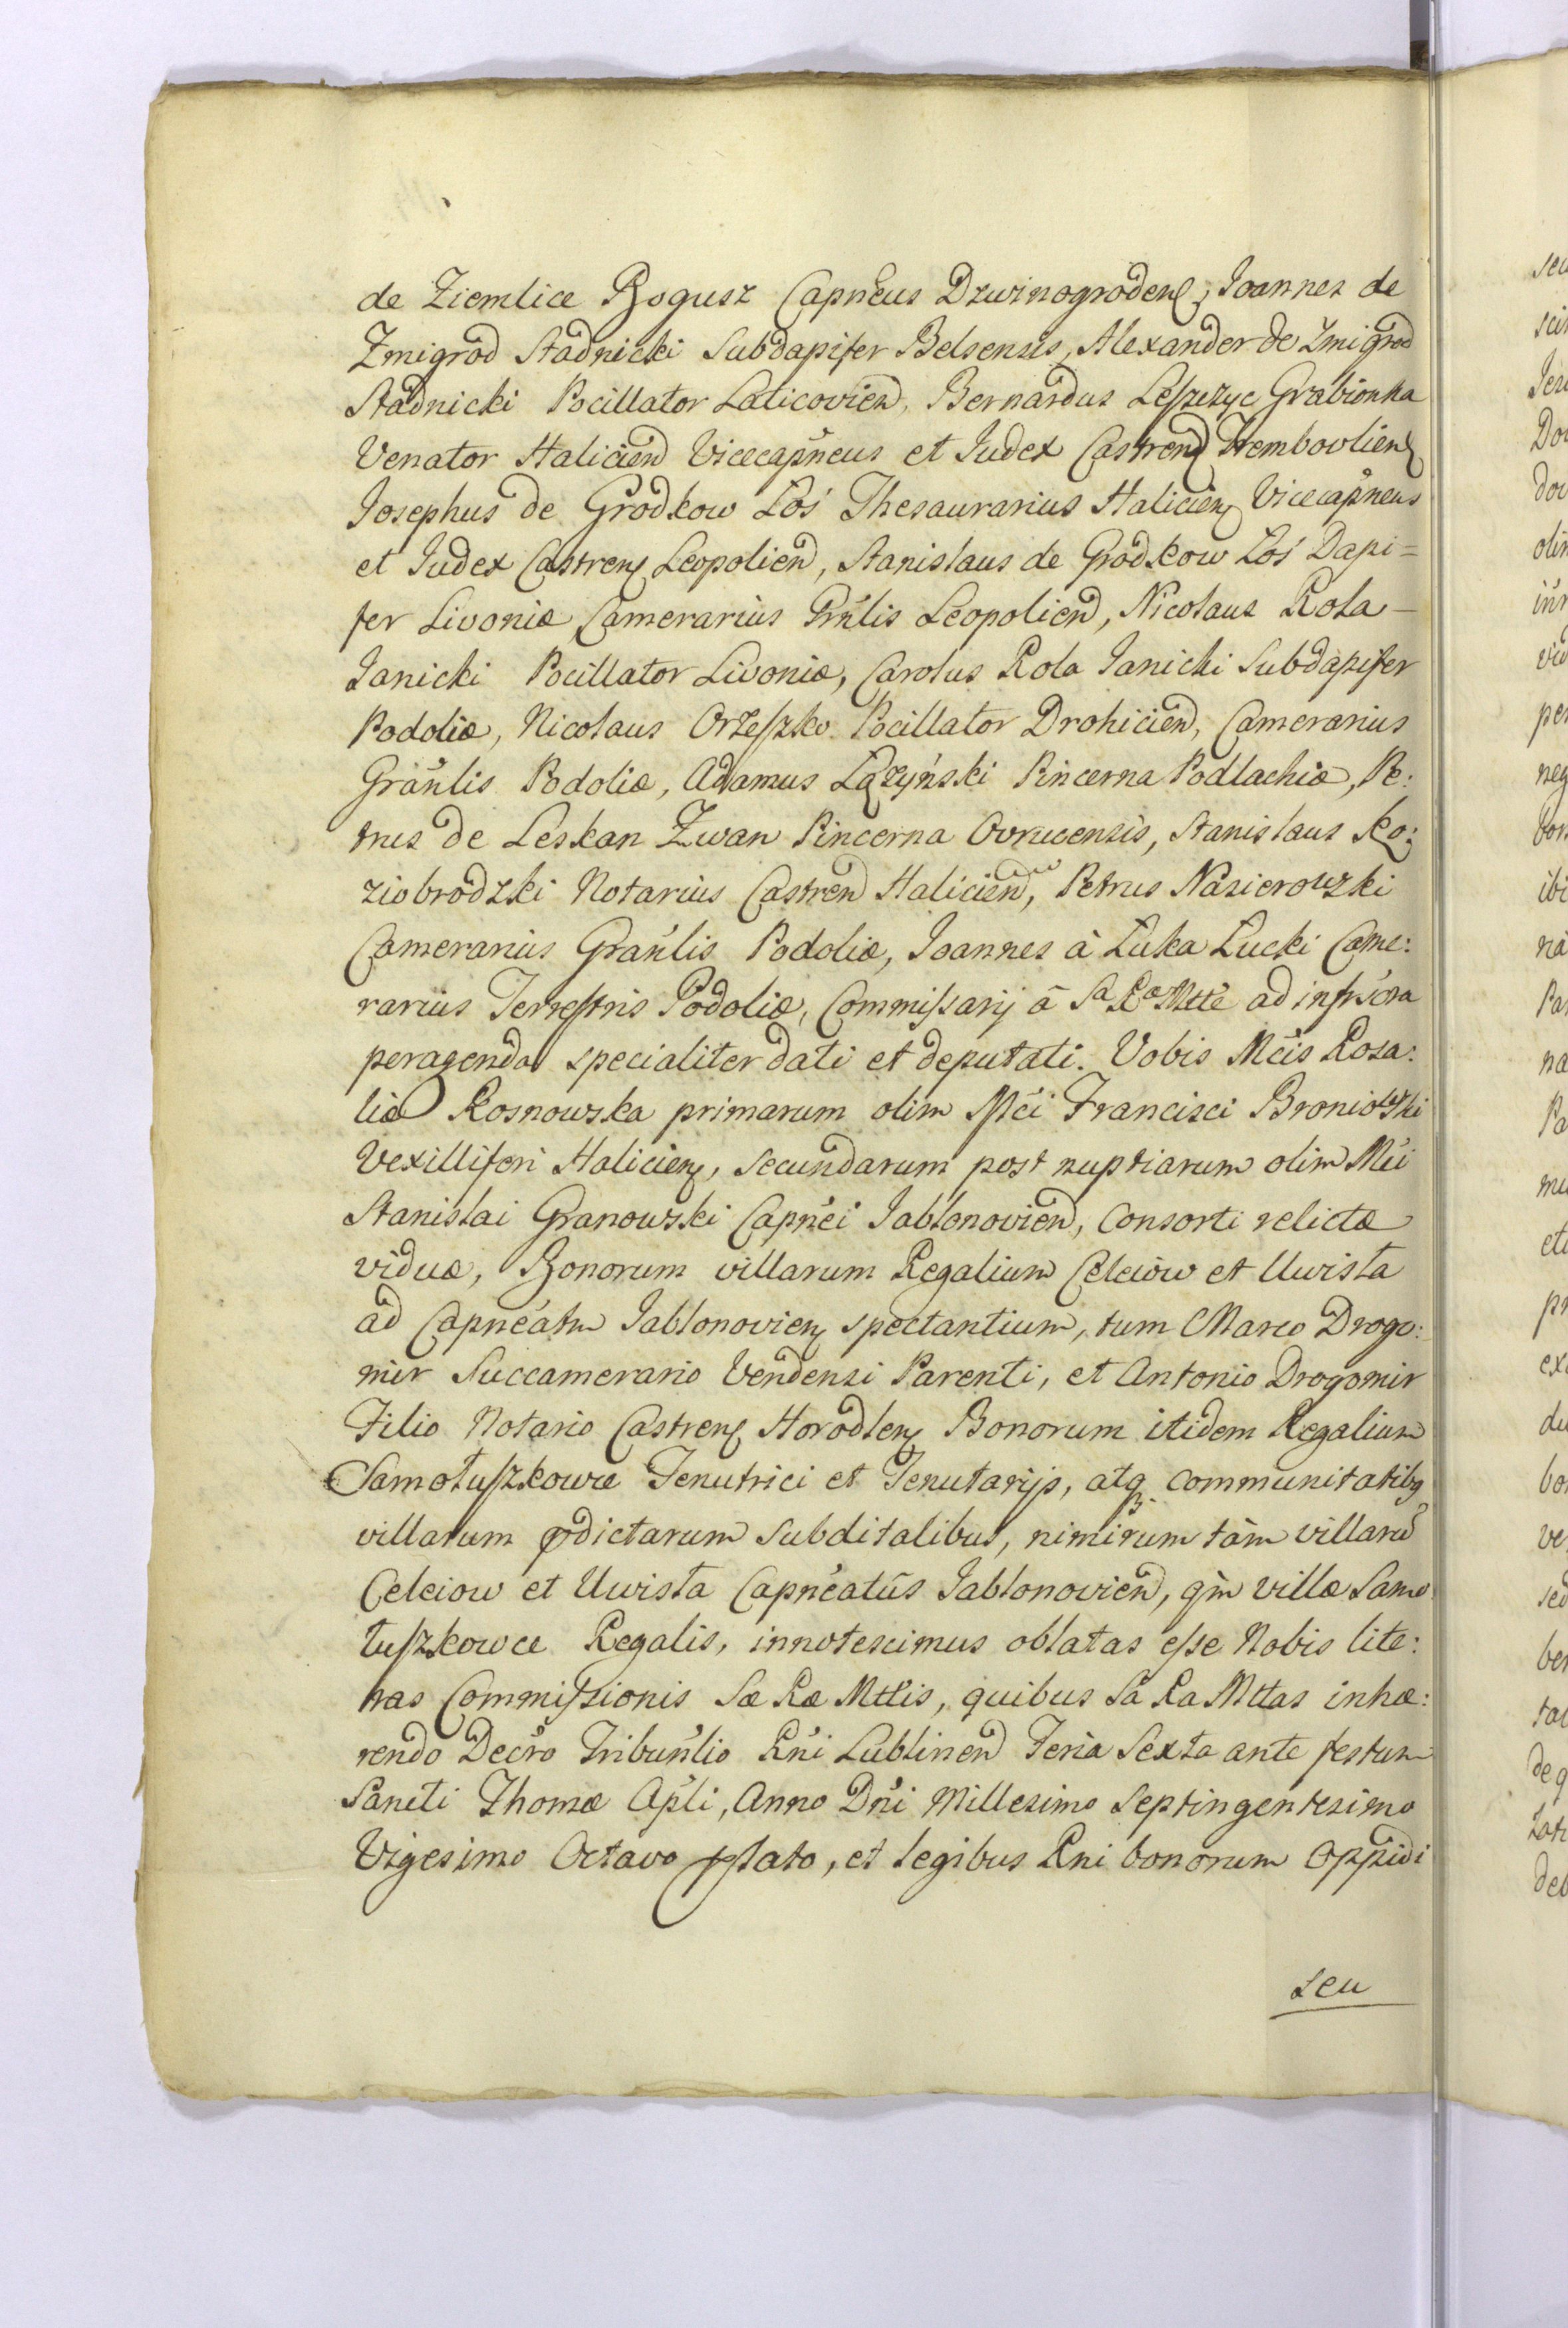 de Ziemlice Bogusz Capneus Dzwinogroden, Joannes de
Zmigrod Stadnicki Subdapifer Belsensis, Alexander de Zmigrod
Stadnicki Pocillator Laticovien, Bernardus Leszczyc Grabionka
Venator Halicien Vicecapneus et Judex Castren Trembovlien
Josephus de Grodkow Łoś Thesaurarius Halicien Vicecapneus
et Judex Castren Leopolien, Stanislaus de Grodkow Łoś Dapi=
fer Livoniæ Camerarius Gnlis Leopolien, Nicolaus Rola-
Janicki Pocillator Livoniæ, Carolus Rola Janicki Subdapifer
Podoliæ, Nicolaus Orzeszko Pocillator Drohicien, Camerarius
Granlis Podoliæ, Adamus Łążyński Pincerna Podlachiæ, Pe:
trus de Leskan Zwan Pincerna Ovrucensis, Stanislaus Ko:
ziobrodzki Notarius Castren Halicien, Petrus Nasierowski
Camerarius Granlis Podoliæ, Joannes à Łuka Łucki Came:
rarius Terrestris Podoliæ, Commissarij à Sa Ra Mtte ad infrscra
peragenda specialiter dati et deputati. Vobis Mcis Rosa:
liæ Kosnowska primarum olim Mci Francisci Broniowski
Vexilliferi Halicien, secundarum post nuptiarum olim Mci
Stanislai Granowski Capnei Jablonovien, consorti relictæ
viduæ, Bonorum villarum Regalium Celeiow et Uwisła
ad Capneatum Jablonovien spectantium, tum Marco Drogo:
mir Succamerario Vendensi Parenti, et Antonio Drogomir
Filio Notario Castren Horodlen Bonorum itidem Regalium
Samołuszkowce Tenutrici et Tenutarijs, atq communitatibq
villarum pdictarum subditalibus, nimirum tàm villarũ
Celeiow et Uwisła Capneatûs Jablonovien, qm villæ Samo
łuszkowce Regalis, innotescimus oblatas esse Nobis lite:
ras Commissionis Sæ Ræ Mttis, quibus Sa Ra Mttas inhæ:
rendo Decro Tribunlio Rni Lublinen Feria Sexta ante festum
Sancti Thomæ Apli, Anno Dni Millesimo Septingentesimo
Vigesimo Octavo plato, et legibus Rni bonorum Oppidi
seu